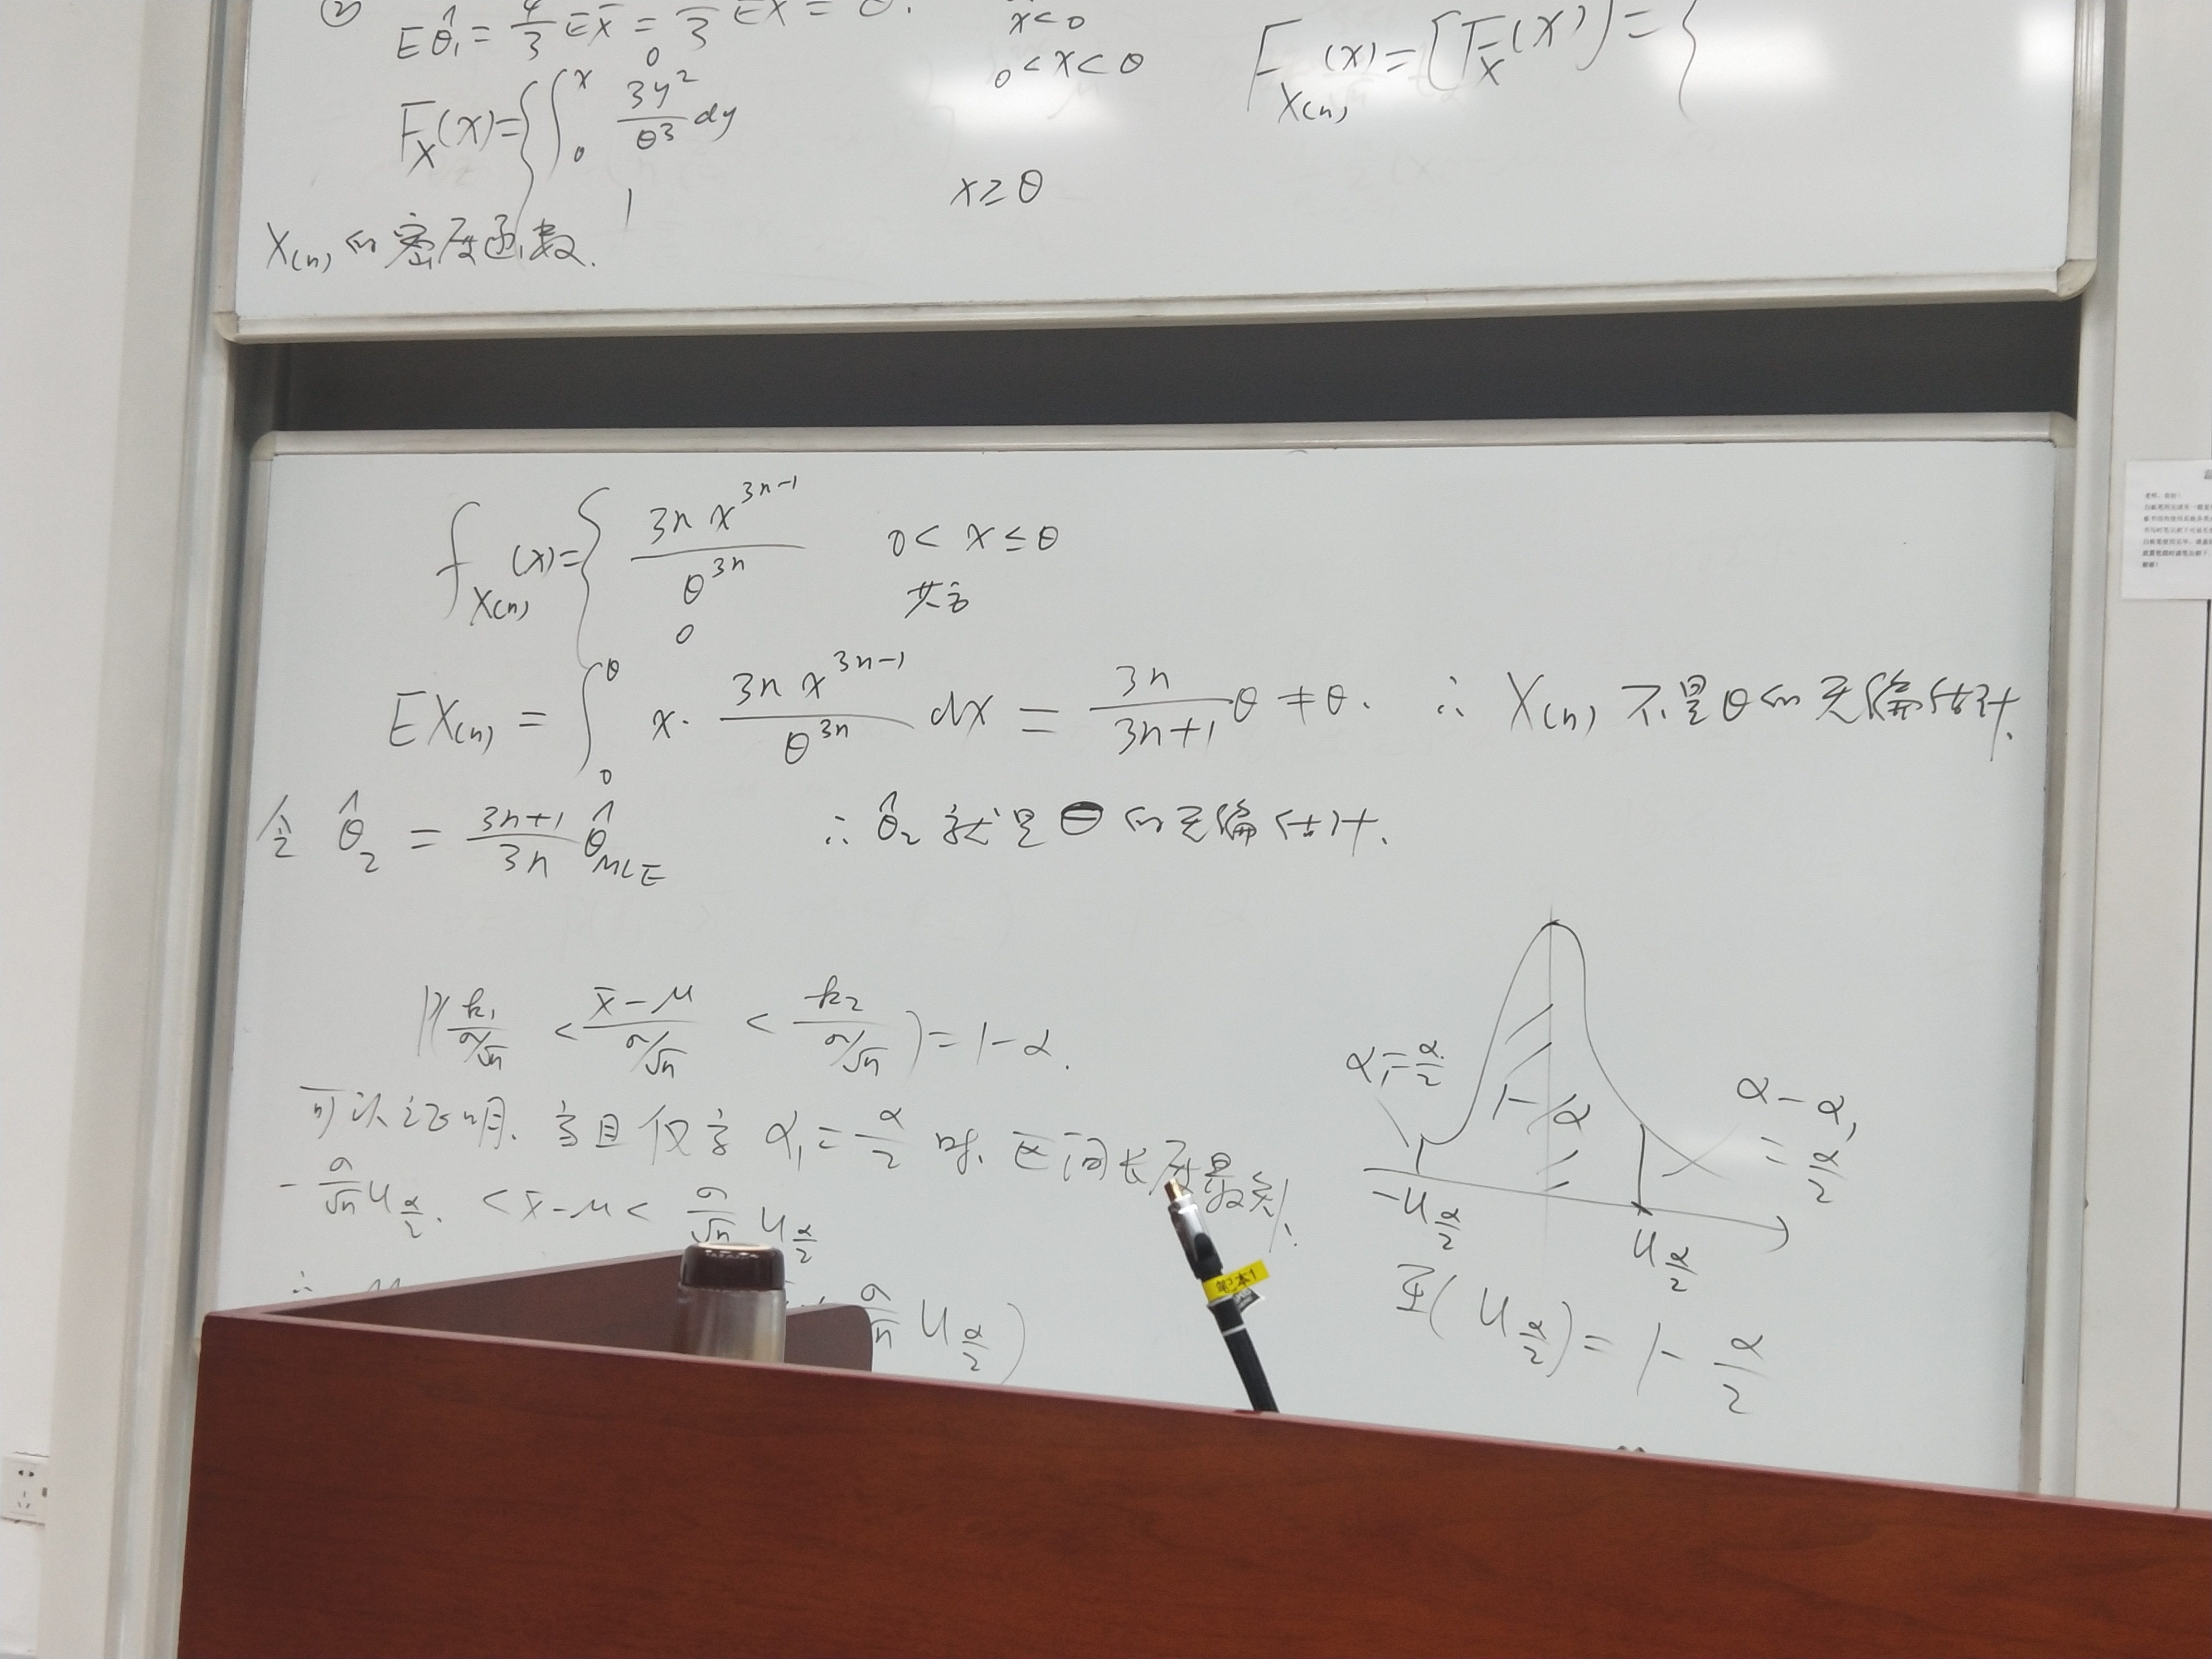 ②
Eθ̂₁ = 4/3 EX̄ = 4/3 EX = θ.
F_X(x) = { 0 x<0
∫₀ˣ 3y²/θ³ dy 0<x<θ
1 x≥θ
F_X(n)(x) = [F_X(x)] = {
X(n) 的密度函数.
f_X(n)(x) = { 3n x^(3n-1) / θ^(3n) 0< x ≤θ
0 其它
EX(n) = ∫₀^θ x· 3n x^(3n-1) / θ^(3n) dx = 3n/(3n+1) θ ≠ θ. ∴ X(n) 不是θ的无偏估计.
令 θ̂₂ = (3n+1)/3n θ̂_MLE ∴ θ̂₂ 就是θ的无偏估计.
P( k₁/(σ/√n) < (x̄-μ)/(σ/√n) < k₂/(σ/√n) ) = 1-α.
可以证明. 当且仅当 α₁ = α/2 时. 区间长度最短!
- σ/√n u_(α/2). < x̄-μ < σ/√n u_(α/2)
∴ σ/√n u_(α/2) )
α₁=α/2
1-α
α-α₁
= α/2
-u_(α/2)
u_(α/2)
Φ( u_(α/2) ) = 1- α/2
笔记本1